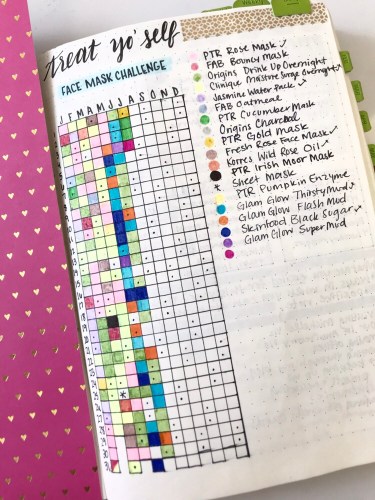 treat yo' self
FACE MASK CHALLENGE
J F M A M J J A S O N D
PTR Rose Mask ✓
FAB Bouncy Mask
Origins Drink Up Overnight
Clinique Moisture Surge Overnight ✓
Jasmine Water Pack ✓
FAB Oatmeal
PTR Cucumber Mask
Origins Charcoal
PTR Gold Mask
Fresh Rose Face Mask ✓
Korres Wild Rose Oil ✓
PTR Irish Moor Mask
* Sheet Mask
PTR Pumpkin Enzyme
Glam Glow Thirsty Mud ✓
Glam Glow Flash Mud
Skinfood Black Sugar ✓
Glam Glow Super Mud